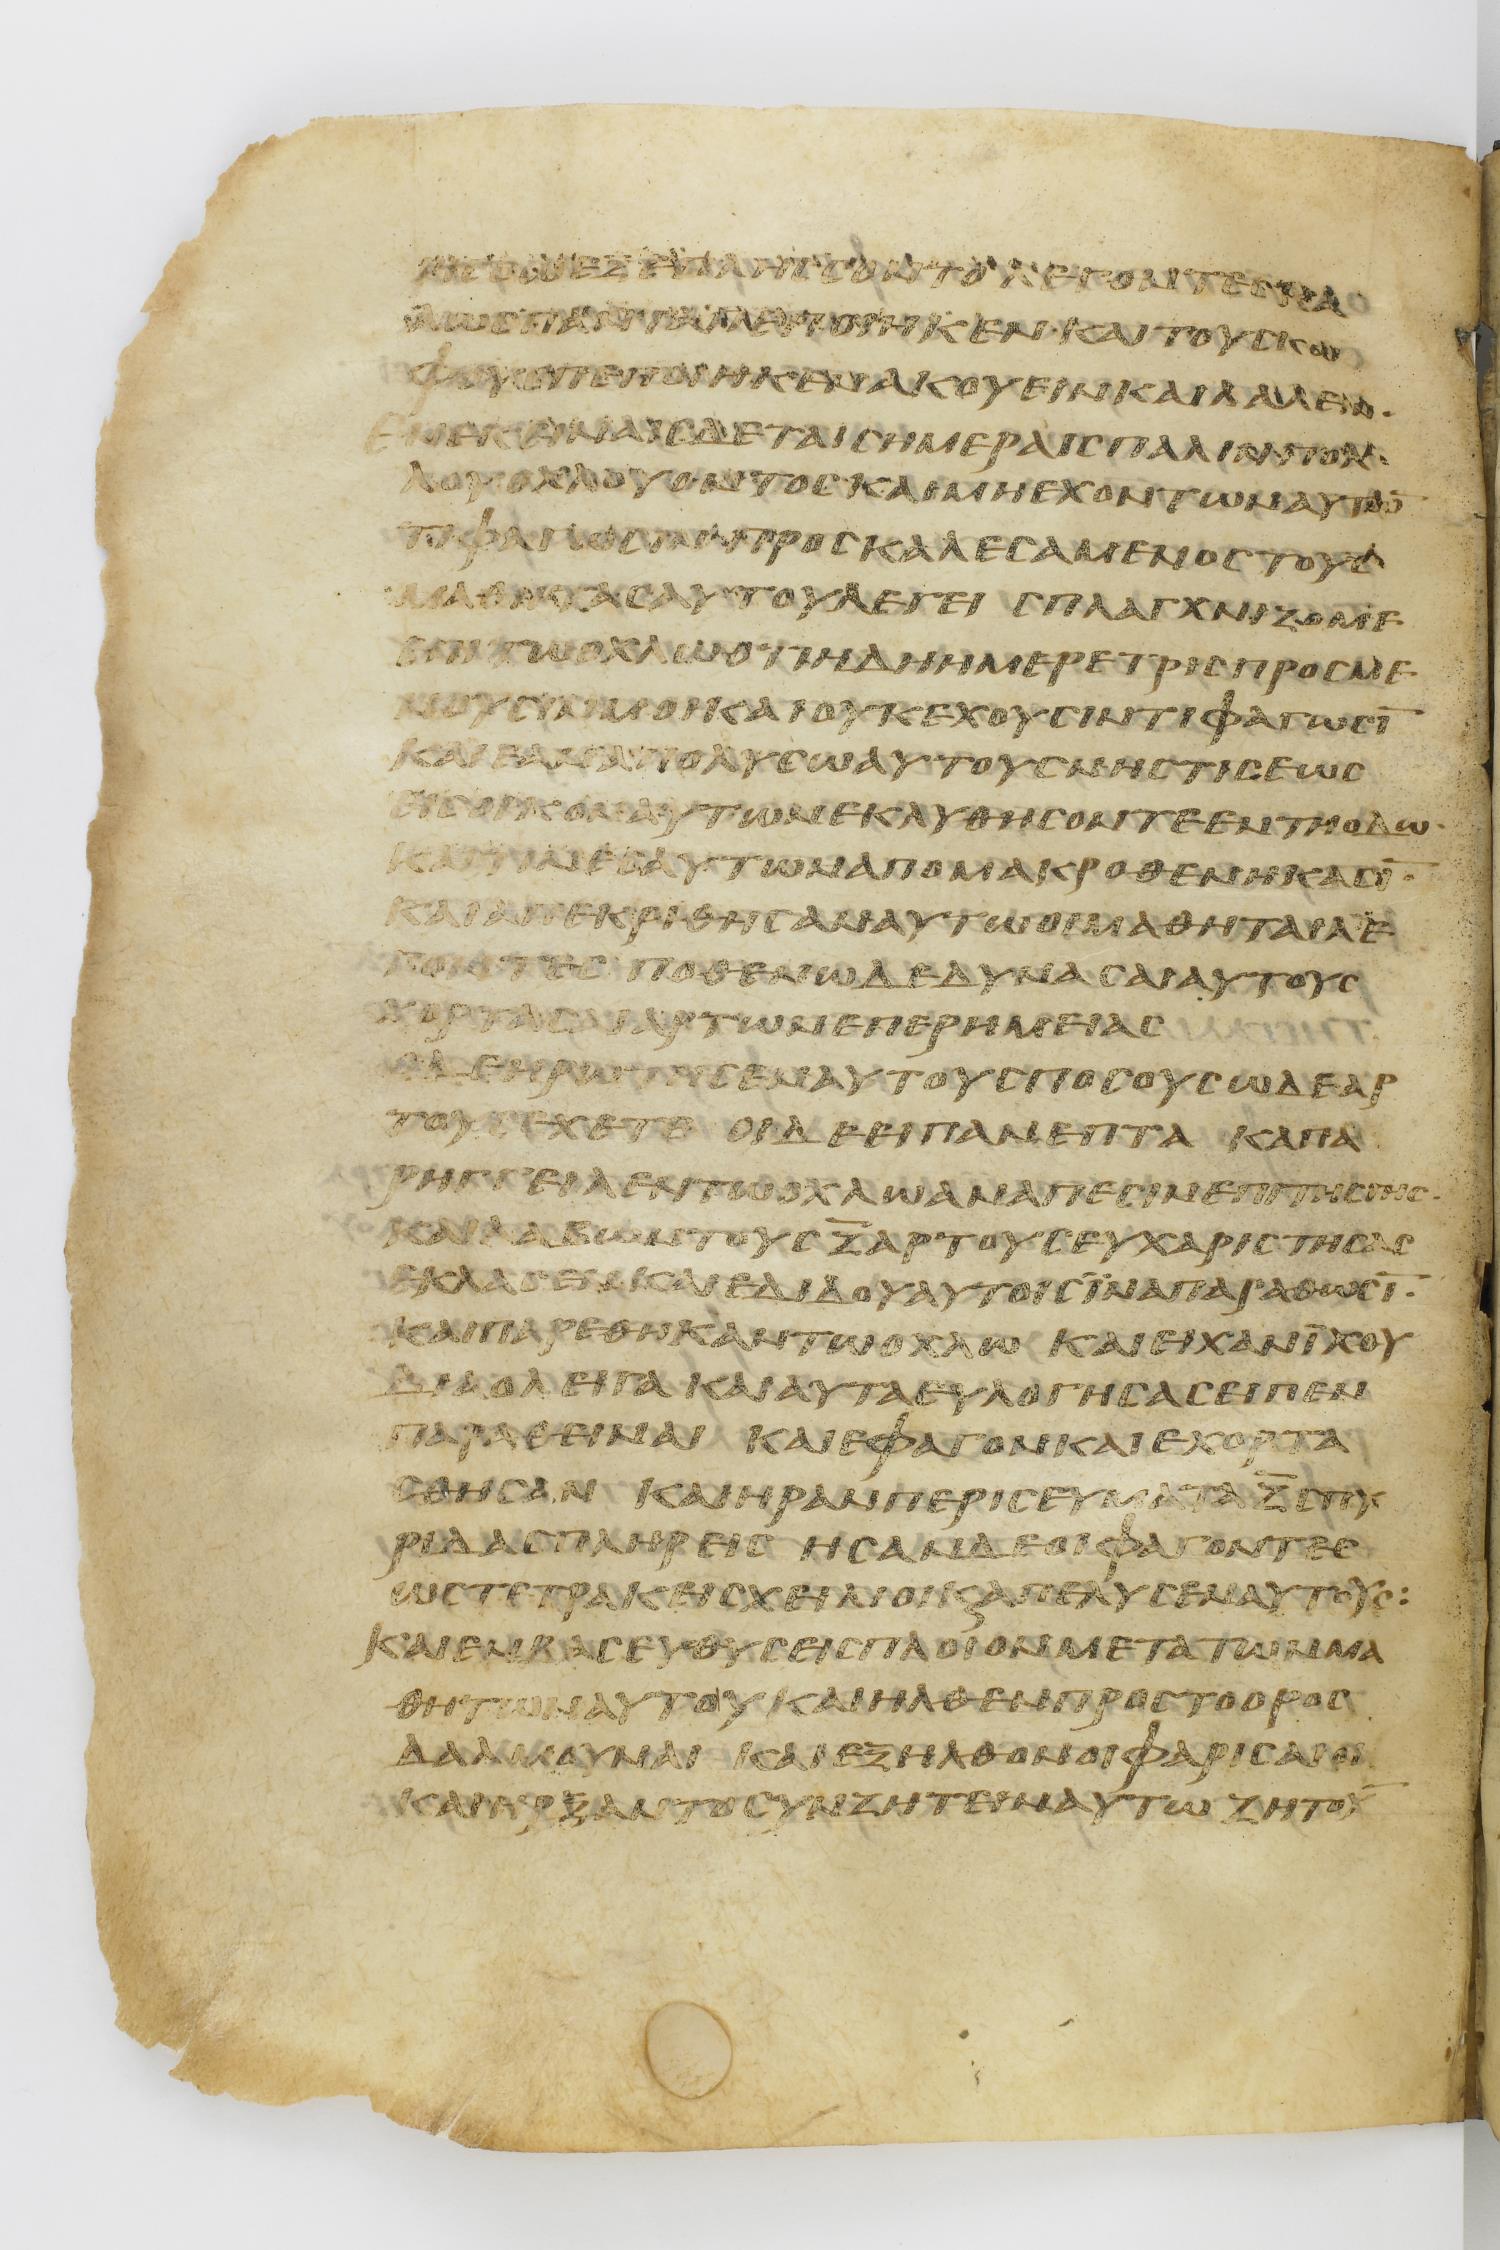 ΕΞΕΠΛΗϹϹΟΝΤΟΛΕΓΟΝΤΕϹΚΑ
ΛΩϹΠΑΝΤΑΠΕΠΟΙΗΚΕΝ·ΚΑΙΤΟΥϹΚΩ
ΦΟΥϹΠΕΠΟΙΗΚΕΝΑΚΟΥΕΙΝΚΑΙΛΑΛΕΙΝ·
ΕΝΕΚΕΙΝΑΙϹΔΕΤΑΙϹΗΜΕΡΑΙϹΠΑΛΙΝΠΟΛ
ΛΟΥΟΧΛΟΥΟΝΤΟϹΚΑΙΜΗΕΧΟΝΤΩΝΑΥΤΩ̄
ΤΙΦΑΓΩϹΙΝΠΡΟϹΚΑΛΕϹΑΜΕΝΟϹΤΟΥϹ
ΜΑΘΗΤΑϹΑΥΤΟΥΛΕΓΕΙ ϹΠΛΑΓΧΝΙΖΟΜΕ
ΕΠΙΤΩΟΧΛΩΟΤΙΗΔΗΗΜΕΡΕΤΡΙϹΠΡΟϹΜΕ
ΝΟΥϹΙΝΜΟΙΚΑΙΟΥΚΕΧΟΥϹΙΝΤΙΦΑΓΩϹῙ
ΚΑΙΕΑΝΑΠΟΛΥϹΩΑΥΤΟΥϹΝΗϹΤΙϹΕΩϹ
ΕΙϹΟΙΚΟΝΑΥΤΩΝΕΚΛΥΘΗϹΟΝΤΕΕΝΤΗΟΔΩ·
ΚΑΙΤΙΝΕϹΑΥΤΩΝΑΠΟΜΑΚΡΟΘΕΝΗΚΑϹῙ·
ΚΑΙΑΠΕΚΡΙΘΗϹΑΝΑΥΤΩΟΙΜΑΘΗΤΑΙΛΕ
ΓΟΝΤΕϹ ΠΟΘΕΝΩΔΕΔΥΝΑϹΑΙΑΥΤΟΥϹ
ΧΟΡΤΑϹΑΙΑΡΤΩΝΕΠΕΡΗΜΕΙΑϹ
ΟΔΕΗΡΩΤΗϹΕΝΑΥΤΟΥϹΠΟϹΟΥϹΩΔΕΑΡ
ΤΟΥϹΕΧΕΤΕ ΟΙΔΕΕΙΠΑΝΕΠΤΑ ΚΑΙΠΑ
ΡΗΓΓΕΙΛΕΝΤΩΟΧΛΩΑΝΑΠΕϹΙΝΕΠΙΤΗϹΓΗϹ·
ΚΑΙΛΑΒΩΝΤΟΥϹΖ̄ΑΡΤΟΥϹΕΥΧΑΡΙϹΤΗϹΑϹ
ΕΚΛΑϹΕΝΚΑΙΕΔΙΔΟΥΑΥΤΟΙϹΪΝΑΠΑΡΑΘΩϹῙ·
ΚΑΙΠΑΡΕΘΗΚΑΝΤΩΟΧΛΩ ΚΑΙΕΙΧΑΝΪΧΘΥ
ΔΙΑΟΛΕΙΓΑ ΚΑΙΑΥΤΑΕΥΛΟΓΗϹΑϹΕΙΠΕΝ
ΠΑΡΑΘΕΙΝΑΙ ΚΑΙΕΦΑΓΟΝΚΑΙΕΧΟΡΤΑ
ϹΘΗϹΑΝ ΚΑΙΗΡΑΝΠΕΡΙϹΕΥΜΑΤΑΖ̄ϹΠΥ
ΡΙΔΑϹΠΛΗΡΕΙϹ ΗϹΑΝΔΕΟΙΦΑΓΟΝΤΕϹ
ΩϹΤΕΤΡΑΚΕΙϹΧΕΙΛΙΟΙΚΑΙΑΠΕΛΥϹΕΝΑΥΤΟΥϹ:
ΚΑΙΕΝΒΑϹΕΥΘΥϹΕΙϹΠΛΟΙΟΝΜΕΤΑΤΩΝΜΑ
ΘΗΤΩΝΑΥΤΟΥ ΚΑΙΗΛΘΕΝΠΡΟϹΤΟΟΡΟϹ
ΔΑΛΜΟΥΝΑΙ ΚΑΙΕΞΗΛΘΟΝΟΙΦΑΡΙϹΑΙΟΙ
ΚΑΙΗΡΞΑΝΤΟϹΥΝΖΗΤΕΙΝΑΥΤΩ ΖΗΤΟῩ